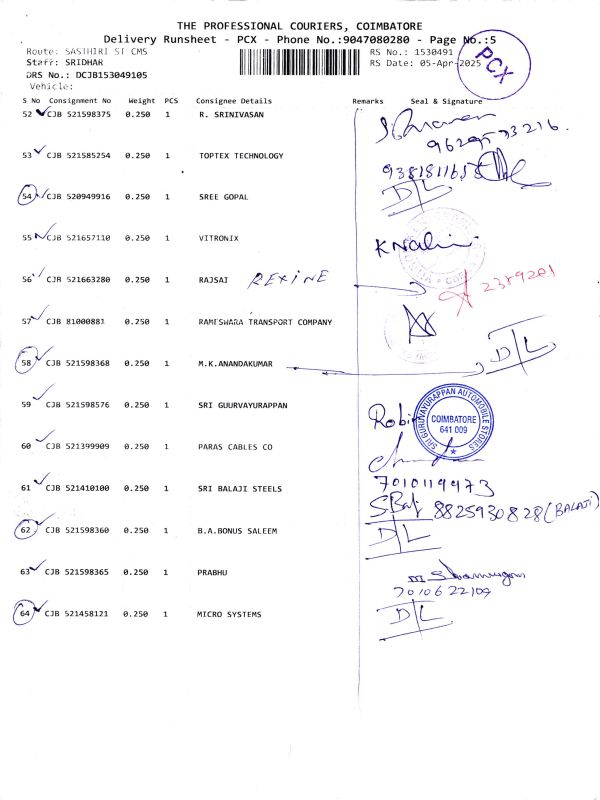 THE PROFESSIONAL COURIERS, COIMBATORE
Delivery Runsheet - PCX - Phone No.:9047080280 - Page No.:5
Route: SASTHIRI ST CMS RS No.: 1530491
Staff: SRIDHAR RS Date: 05-Apr-2025
DRS No.: DCJB153049105
Vehicle:
PCX
S No Consignment No Weight PCS Consignee Details Remarks Seal & Signature
52 CJB 521598375 0.250 1 R. SRINIVASAN
9629573216.
53 CJB 521585254 0.250 1 TOPTEX TECHNOLOGY
9381811658
54 CJB 520949916 0.250 1 SREE GOPAL D/L
55 CJB 521657110 0.250 1 VITRONIX K Nalini
56 CJB 521663280 0.250 1 RAJSAI REXINE 2389201
57 CJB 81000881 0.250 1 RAMESWARA TRANSPORT COMPANY
58 CJB 521598368 0.250 1 M.K.ANANDAKUMAR D/L
59 CJB 521598576 0.250 1 SRI GUURVAYURAPPAN Robi
SRI GURUVAYURAPPAN AUTOMOBILE STORES
COIMBATORE
641 009
60 CJB 521399909 0.250 1 PARAS CABLES CO
7010119973
61 CJB 521410100 0.250 1 SRI BALAJI STEELS
8825930828 (BALAJI)
62 CJB 521598360 0.250 1 B.A.BONUS SALEEM D/L
63 CJB 521598365 0.250 1 PRABHU
7010622109
64 CJB 521458121 0.250 1 MICRO SYSTEMS D/L